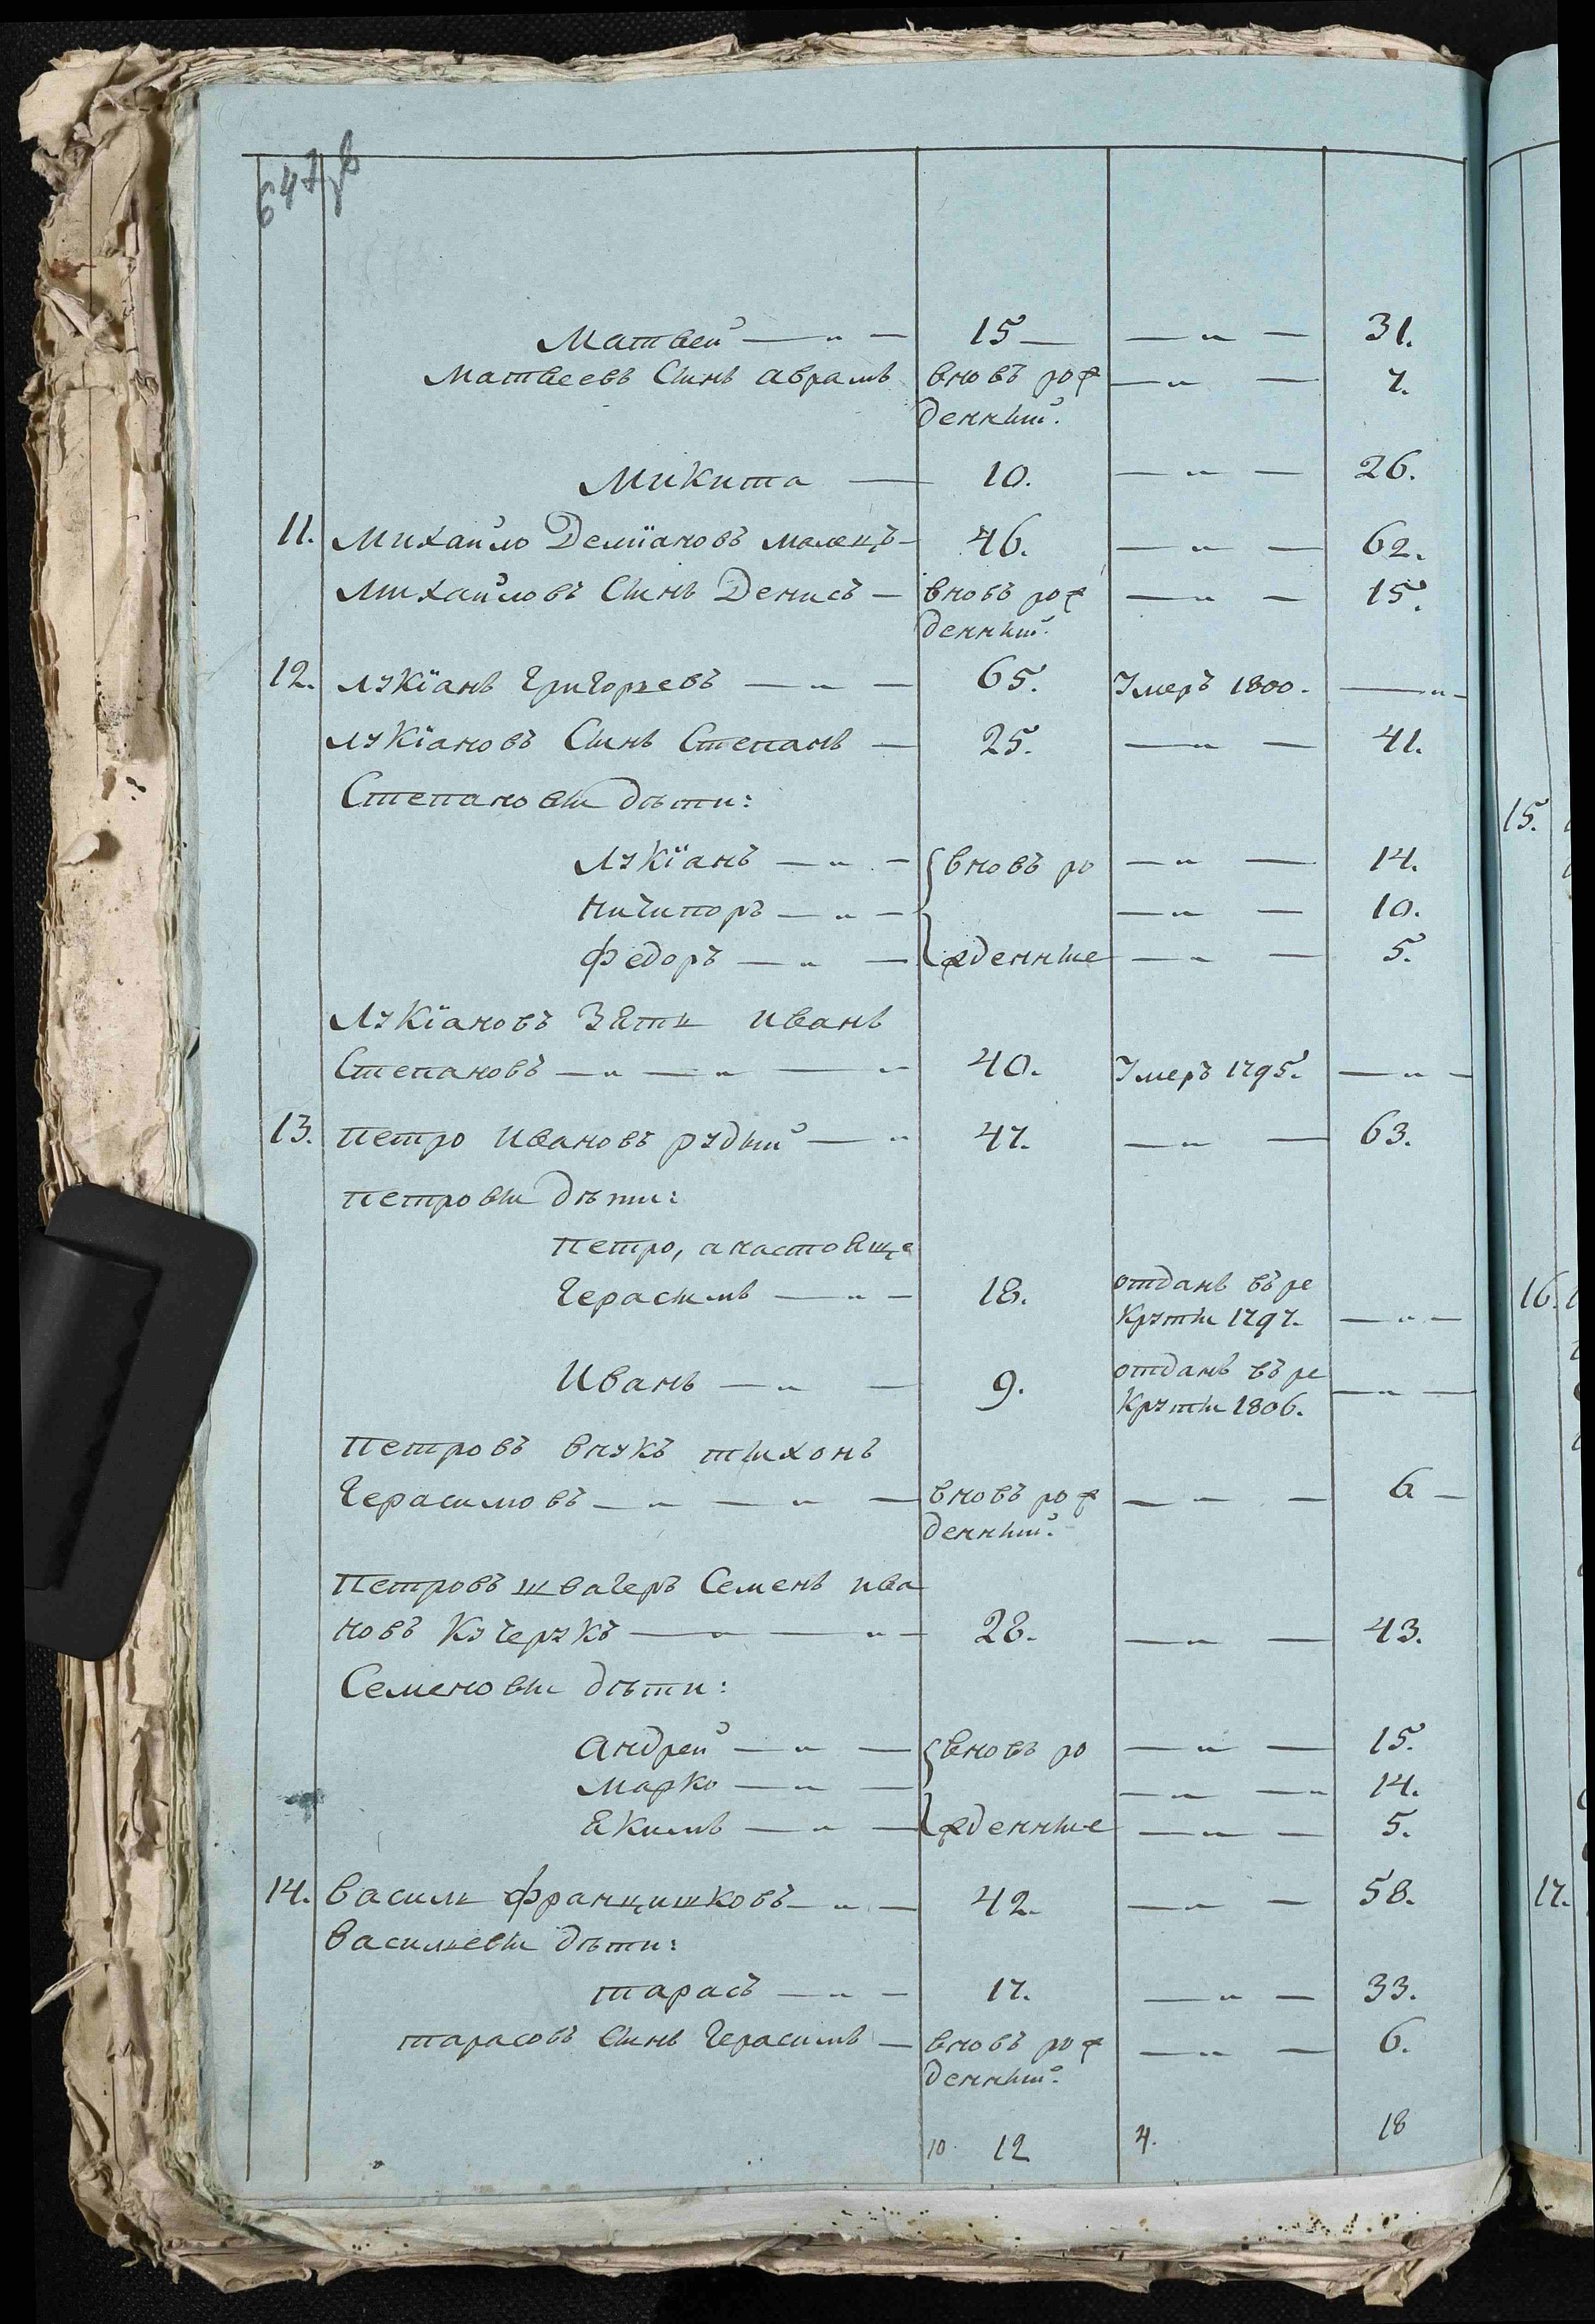 647
Матвей — „ — 15 — — „ — 31.
Матвеевъ Сынъ Аврамъ вновъ рож — „ — 7.
денный.
Микита — 10. — „ — 26.
11. Михайло Деміановъ малецъ — 46. — „ — 62.
Михайловъ Сынъ Денисъ — вновъ рож — „ — 15.
денный.
12. Лукіанъ Григорьевъ — „ — 65. Умеръ 1800. — „ —
Лукіановъ Сынъ Степанъ — 25. — „ — 41.
Степановы дѣти:
Лукіанъ — „ — вновъ ро — „ — 14.
Ничипоръ — „ — — „ — 10.
Федоръ — „ — жденные — „ — 5.
Лукіановъ Зять Иванъ
Степановъ — „ — „ — „ 40. Умеръ 1795. — „ —
13. Петро Ивановъ рудый — „ 47. — „ — 63.
Петровы дѣти:
Петро, а настояще
Герасымъ — „ — 18. отданъ въ ре
круты 1797. — „ —
Иванъ — „ — 9. отданъ въ ре
круты 1806. — „ —
Петровъ внукъ тыхонъ
Герасимовъ — „ — „ — вновъ рож — „ — 6 —
денный.
Петровъ швагеръ Семенъ ива
новъ Кучерукъ — „ — „ — 28. — „ — 43.
Семеновы дѣти:
Андрей — „ — вновъ ро — „ — 15.
Марко — „ — — „ — „ 14.
Якимъ — „ — жденные — „ — 5.
14. Василь Францишковъ — „ — 42. — „ — 58.
Васильевы дѣти:
тарасъ — „ — 17. — „ — 33.
тарасовъ Сынъ Герасимъ — вновъ рож — „ — 6.
денный.
10. 12 4. 18
15.
16.
17.